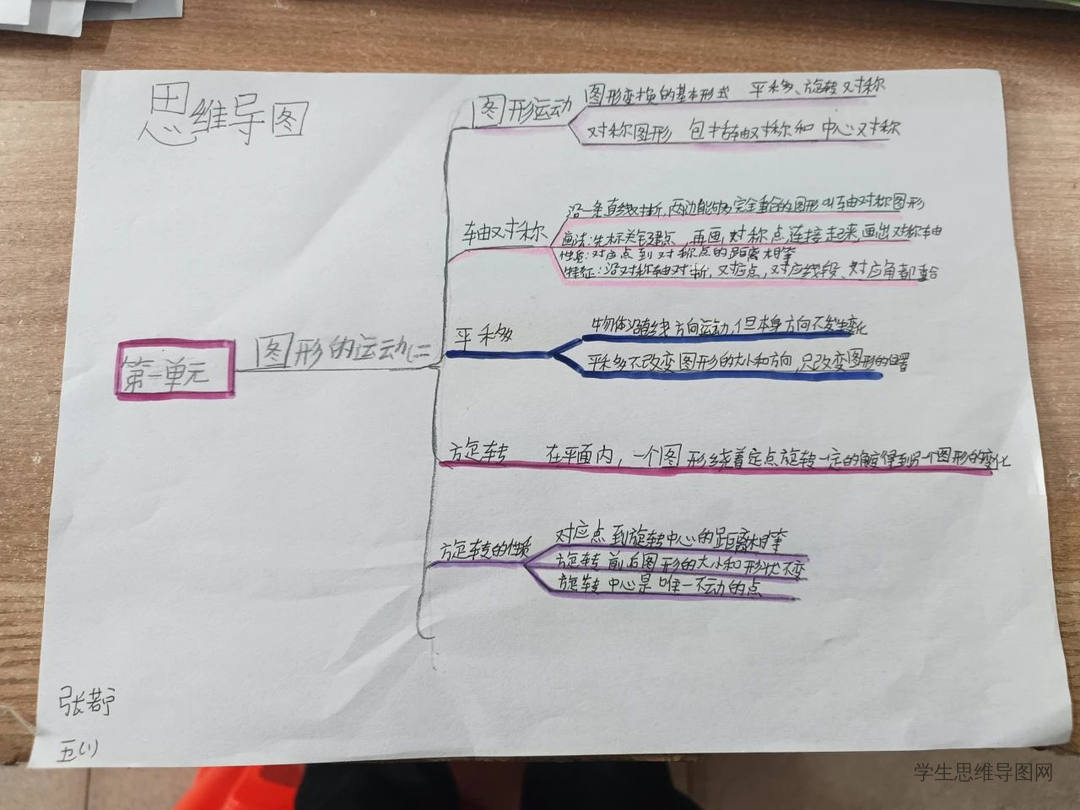 思维导图
图形运动
图形变换的基本形式 平移、旋转对称
对称图形 包括轴对称和中心对称
轴对称
沿一条直线对折,两边能够完全重合的图形叫轴对称图形
画法:先标关键点,再画对称点连接起来,画出对称轴
性质:对应点到对称点的距离相等
特征:沿对称轴对折,对应点,对应线段、对应角都重合
平移
物体沿直线方向运动,但本身方向不发生变化
平移不改变图形的大小和方向,只改变图形的位置
第一单元
图形的运动(二
旋转
在平面内,一个图形绕着定点旋转一定的角度得到另一个图形的变化
旋转的性质
对应点到旋转中心的距离相等
旋转前后图形的大小和形状不变
旋转中心是唯一不动的点
张若宁
五(1)
学生思维导图网